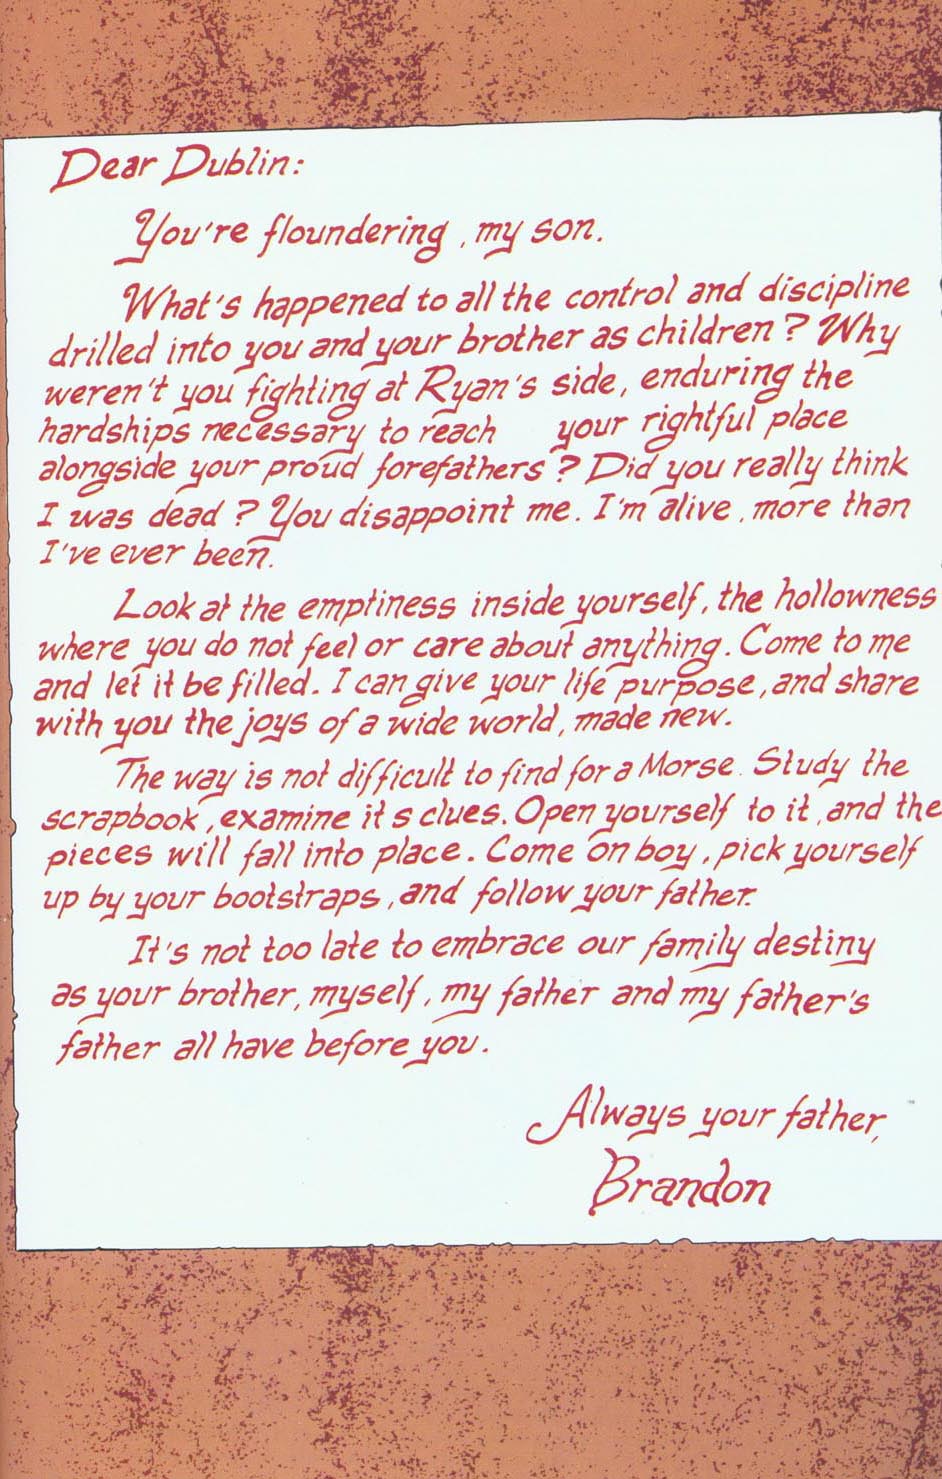 Dear Dublin:
You're floundering, my son.
What's happened to all the control and discipline
drilled into you and your brother as children? Why
weren't you fighting at Ryan's side, enduring the
hardships necessary to reach your rightful place
alongside your proud forefathers? Did you really think
I was dead? You disappoint me. I'm alive, more than
I've ever been.
Look at the emptiness inside yourself, the hollowness
where you do not feel or care about anything. Come to me
and let it be filled. I can give your life purpose, and share
with you the joys of a wide world, made new.
The way is not difficult to find for a Morse. Study the
scrapbook, examine it s clues. Open yourself to it, and the
pieces will fall into place. Come on boy, pick yourself
up by your bootstraps, and follow your father.
It's not too late to embrace our family destiny
as your brother, myself, my father and my father's
father all have before you.
Always your father,
Brandon